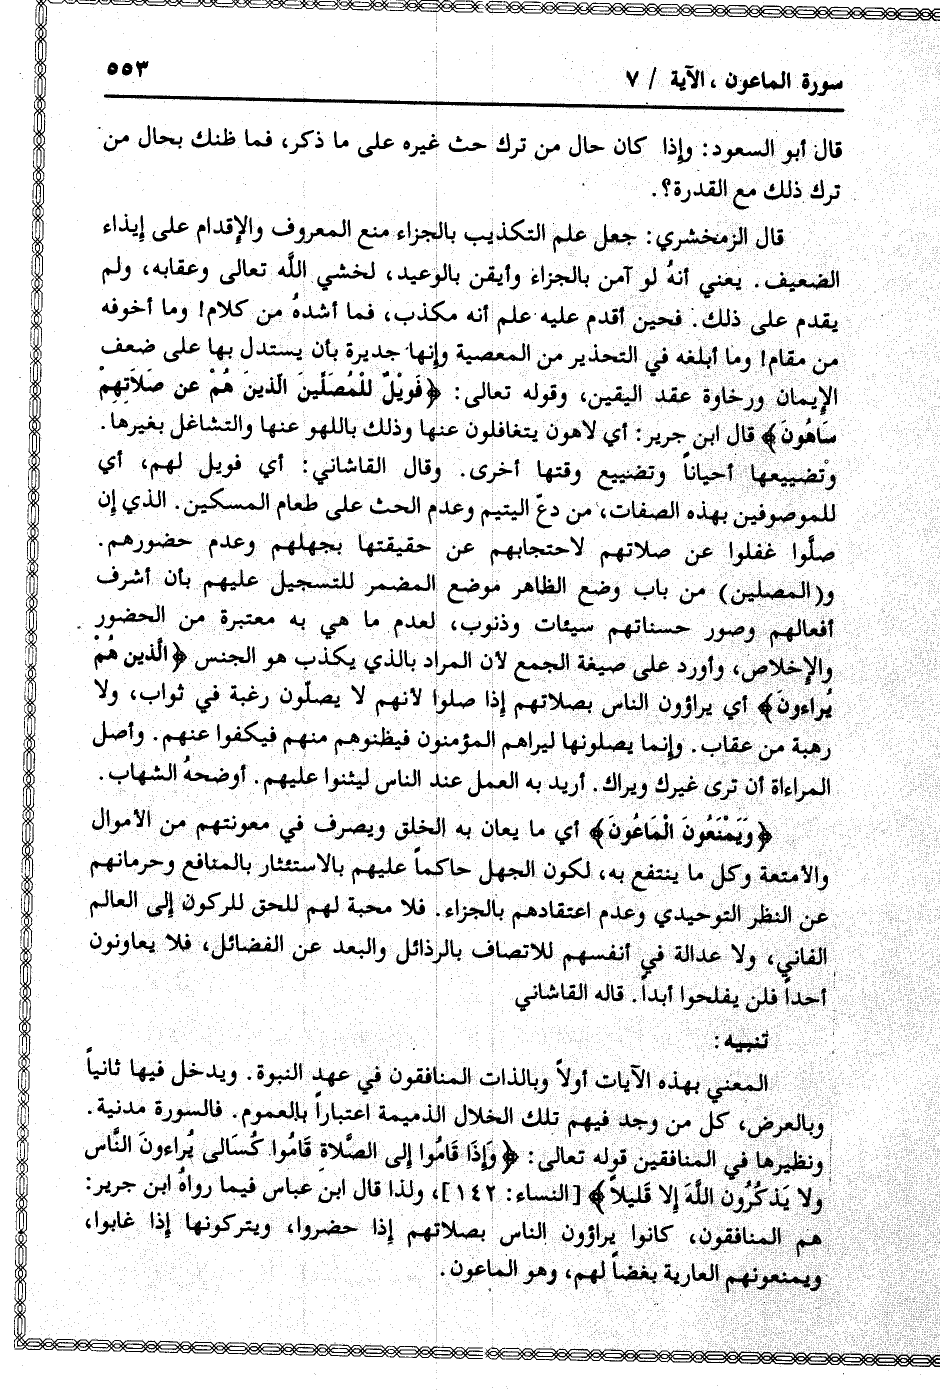 سورة الماعون ، الآية / ٧
٥٥٣
قال أبو السعود: وإذا كان حال من ترك حث غيره على ما ذكر، فما ظنك بحال من
ترك ذلك مع القدرة؟.
قال الزمخشري: جعل علم التكذيب بالجزاء منع المعروف والإقدام على إيذاء
الضعيف. يعني أنهُ لو آمن بالجزاء وأيقن بالوعيد، لخشي اللَّه تعالى وعقابه، ولم
يقدم على ذلك. فحين أقدم عليه علم أنه مكذب، فما أشدهُ من كلام! وما أخوفه
من مقام! وما أبلغه في التحذير من المعصية وإنها جديرة بأن يستدل بها على ضعف
الإيمان ورخاوة عقد اليقين، وقوله تعالى: ﴿فَوَيْلٌ لِلْمُصَلِّينَ الَّذِينَ هُمْ عن صَلَاتِهِمْ
سَاهُونَ﴾ قال ابن جرير: أي لاهون يتغافلون عنها وذلك باللهو عنها والتشاغل بغيرها.
وتضييعها أحياناً وتضييع وقتها أخرى. وقال القاشاني: أي فويل لهم، أي
للموصوفين بهذه الصفات، من دعّ اليتيم وعدم الحث على طعام المسكين. الذي إن
صلّوا غفلوا عن صلاتهم لاحتجابهم عن حقيقتها بجهلهم وعدم حضورهم.
و(المصلين) من باب وضع الظاهر موضع المضمر للتسجيل عليهم بأن أشرف
أفعالهم وصور حسناتهم سيئات وذنوب، لعدم ما هي به معتبرة من الحضور
والإخلاص، وأورد على صيغة الجمع لأن المراد بالذي يكذب هو الجنس ﴿الَّذين هُمْ
يُراءونَ﴾ أي يراؤون الناس بصلاتهم إذا صلوا لأنهم لا يصلّون رغبة في ثواب، ولا
رهبة من عقاب. وإنما يصلونها ليراهم المؤمنون فيظنوهم منهم فيكفوا عنهم. وأصل
المراءاة أن ترى غيرك ويراك. أريد به العمل عند الناس ليثنوا عليهم. أوضحهُ الشهاب.
﴿وَيَمْنَعُونَ الْمَاعُونَ﴾ أي ما يعان به الخلق ويصرف في معونتهم من الأموال
والأمتعة وكل ما ينتفع به، لكون الجهل حاكماً عليهم بالاستئثار بالمنافع وحرمانهم
عن النظر التوحيدي وعدم اعتقادهم بالجزاء. فلا محبة لهم للحق للركون إلى العالم
الفاني، ولا عدالة في أنفسهم للاتصاف بالرذائل والبعد عن الفضائل، فلا يعاونون
أحداً فلن يفلحوا أبداً. قاله القاشاني
تنبيه:
المعني بهذه الآيات أولاً وبالذات المنافقون في عهد النبوة. ويدخل فيها ثانياً
وبالعرض، كل من وجد فيهم تلك الخلال الذميمة اعتباراً بالعموم. فالسورة مدنية.
ونظيرها في المنافقين قوله تعالى: ﴿وَإِذَا قَامُوا إلى الصَّلاةِ قَامُوا كُسَالى يُراءونَ النَّاس
ولا يَذكُرُون اللَّهَ إلا قَليلاً﴾ [النساء: ١٤٢]، ولذا قال ابن عباس فيما رواهُ ابن جرير:
هم المنافقون، كانوا يراؤون الناس بصلاتهم إذا حضروا، ويتركونها إذا غابوا،
ويمنعونهم العارية بغضاً لهم، وهو الماعون.